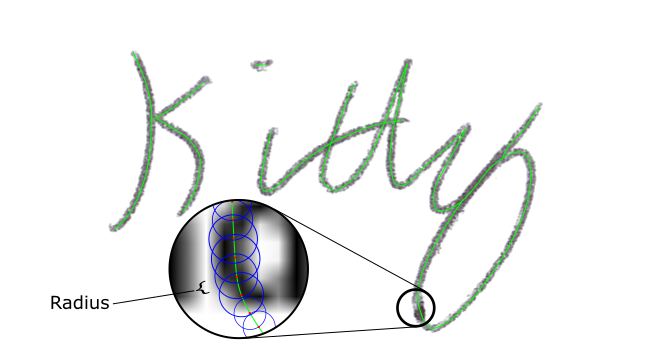 Kitty
Radius